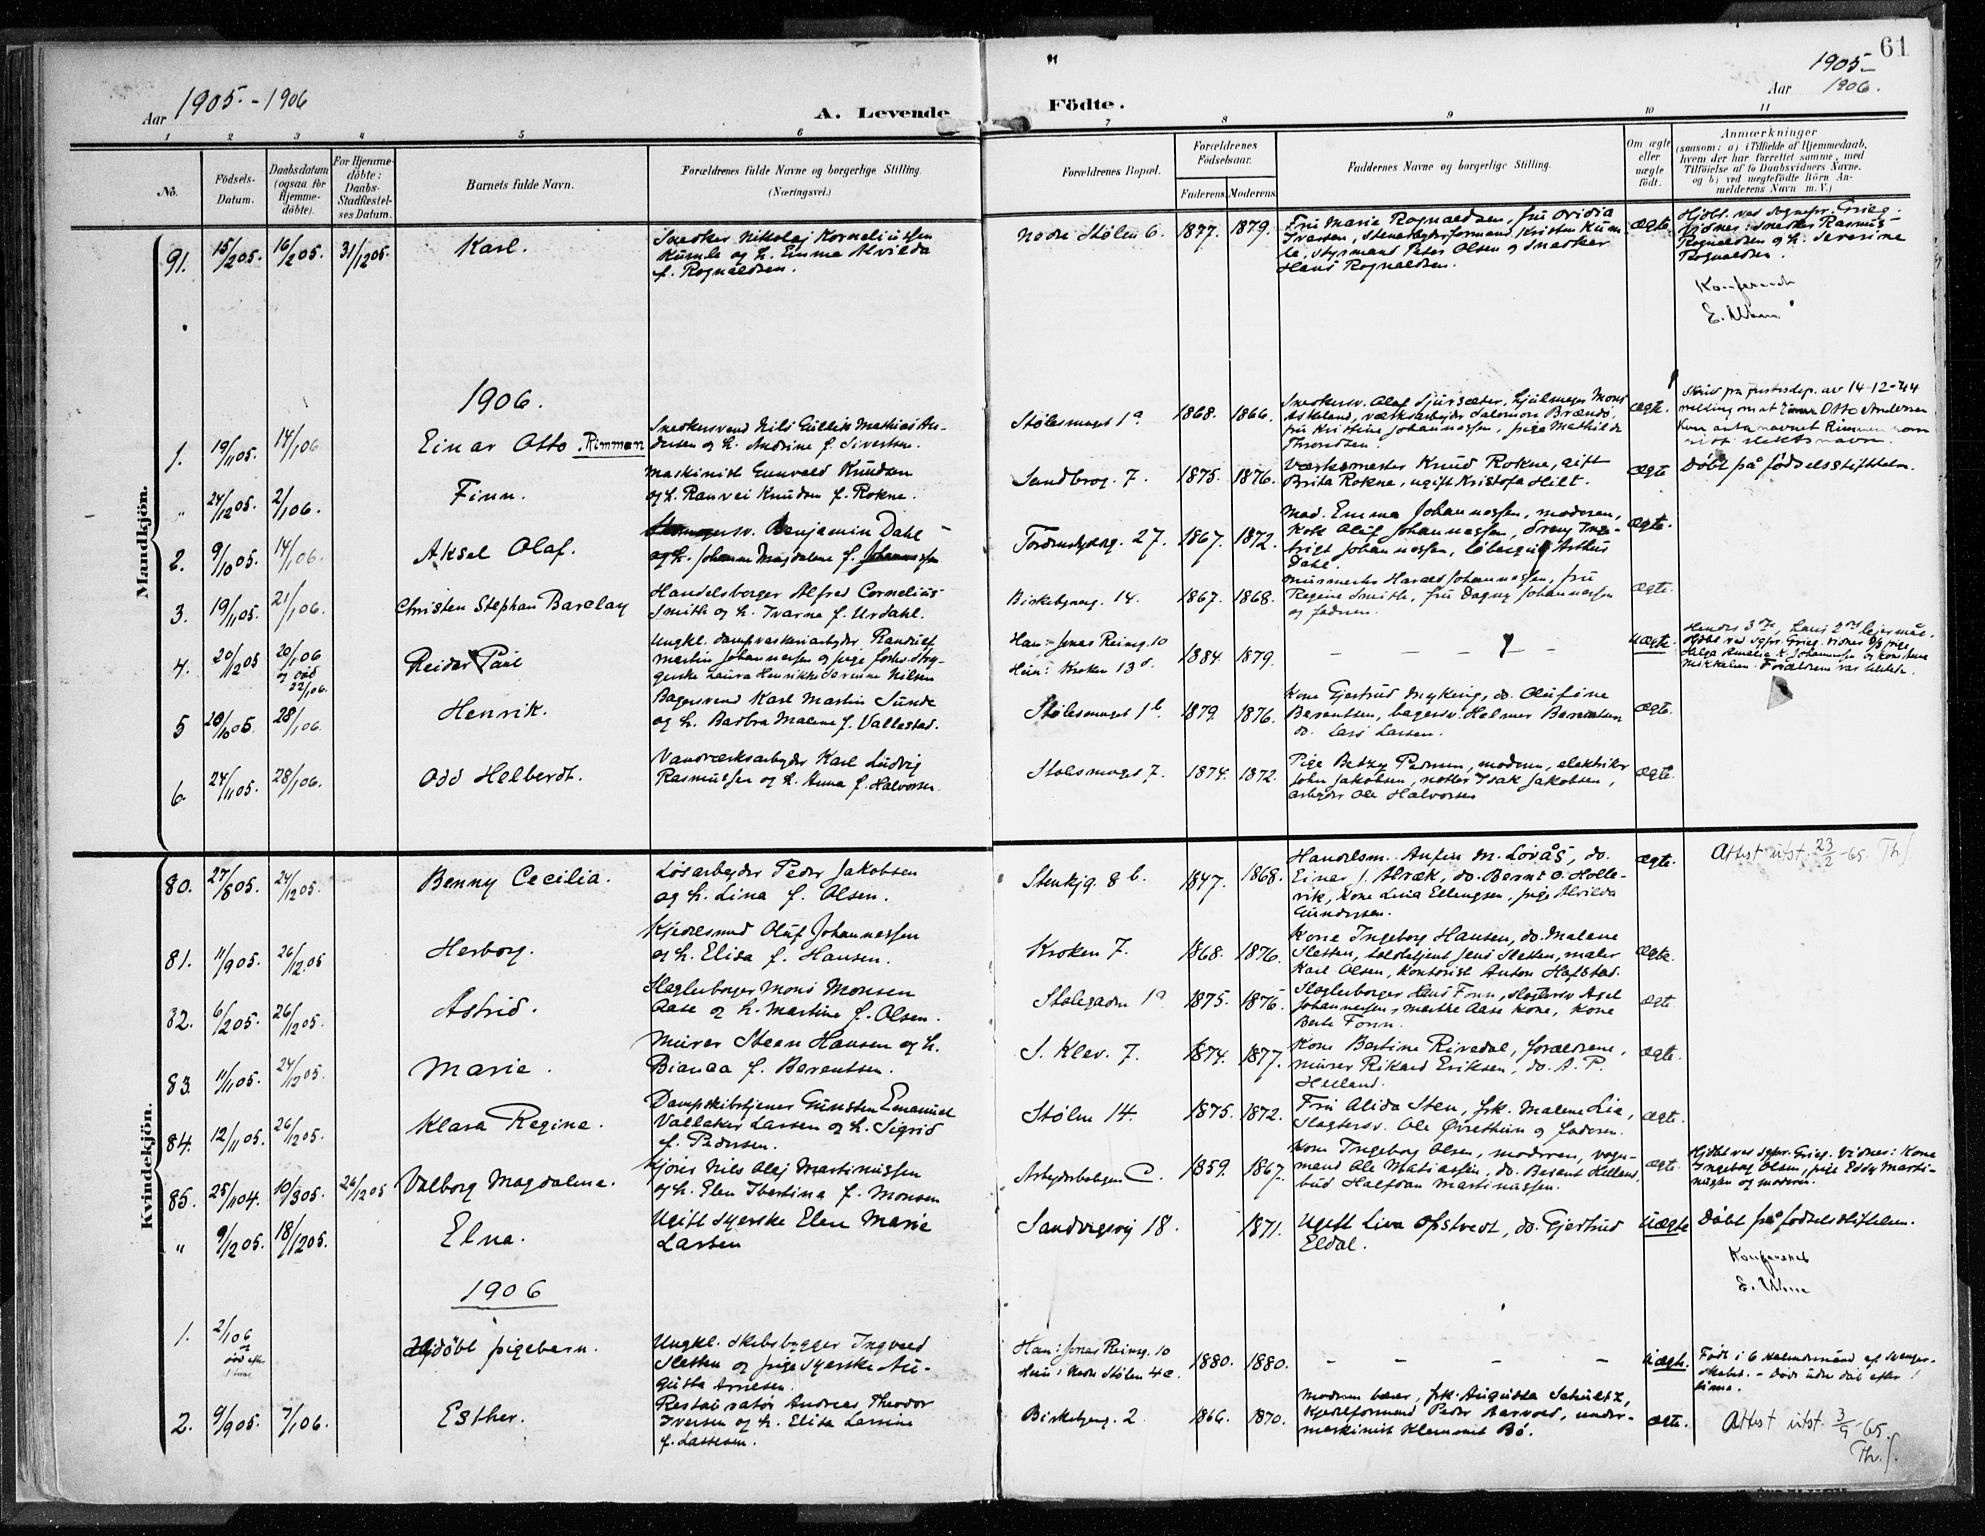 61
Aar 1905.-1906
A. Levende
Födte.
1905-
Aar 1906.
1 2 3 4 5 6 7 8 9 10 11
No.
Födsels-
Datum.
Daabsdatum
(ogsaa for
Hjemme-
döbte).
For Hjemme-
döbte:
Daabs-
Stadfæstel-
ses Datum.
Barnets fulde Navn.
Forældrenes fulde Navne og borgerlige Stilling.
(Næringsvei.)
Forældrenes Bopæl.
Forældrenes
Födselsaar.
Faderens. Moderens.
Faddernes Navne og borgerlige Stilling.
Om ægte
eller
uægte
födt.
Anmærkninger
(saasom: a) i Tilfælde af Hjemmedaab,
hvem der har forrettet samme, med
Tilföielse af to Daabsvidners Navne.
og b) ved uægtefödte Börn An-
melderens Navn m. V.)
Mandkjön.
91. 15/2 05. 16/2 05. 31/12 05. Karl.
Snedker Nikolaj Korneliussen
Kumle og h. Emma Alvilda
f. Rognaldsen.
Nedre Stølen 6. 1877. 1879.
Fru Marie Rognaldsen, fru Ovidia
Iversen, Stenarbejderformand Kristen Kum-
le, styrmand Peter Olsen og Snedker
Hans Rognaldsen.
ægte.
Hjdbt. ved Sognepr. Grieg.
Vidner: Snedker Rasmus
Rognaldsen og h. Severine
Rognaldsen.
Konfereret
1906.
1. 19/11 05. 14/1 06. Einar Otto. Rimman
Snedkersvend Nils Gullik Mathias An-
dersen og h. Andrine f. Sivertsen.
Stølesmuget 1a 1868. 1866.
Snedkersv. Olaf Sjursæter, hjulmager Mons
Askeland, værksarbejder Salomon Brændø,
fru Kristine Johannessen, pige Mathilde
Thorsten.
ægte.
Skriv fra justisdep. av 14-12-44
melding om at Einar Otto Andersen
kan anta navnet Rimman som
sitt slektsnavn.
" 24/12 05. 2/1 06. Finn.
Maskinist Gunvald Knudsen
og h. Ranvei Knudsen f. Rokne.
Sandbrog. 7. 1875. 1876.
Værksmester Knud Rokne, gift
Brita Rokne, ugift Kristofa Hilt.
ægte
Døbt på fødselsstiftelsen.
2. 9/10 05. 14/1 06. Aksel Olaf.
Benjamin Dahl
og h. Johanne Magdalene f. Johannessen
Tordenskjoldsg. 27. 1867. 1872.
Mad. Emma Johannessen, moderen,
Kok Oluf Johannessen, Dreng Inge-
brigt Johannessen, Løbergut Arthur
Dahl.
ægte.
3. 19/11 05. 21/1 06. Christen Stephan Barclay
Handelsborger Alfred Cornelius
Smith og h. Ivarna f. Urdahl.
Birkebeynerg. 14. 1867. 1868.
Murmester Harald Johannessen, fru
Regine Smith, fru Dagny Johannessen
og faderen.
ægte.
4. 20/12 05 20/1 06
og død
22/1 06.
Reidar Paul
Ungkl. dampvaskeriarbejder Randulf
Martin Johannessen og pige
Laura Henrikke Severine Nilsen
Han: Jonas Reinsg. 10
Hun: Kroken 13
1884 1879.
uægte.
Hendes 3die, hans 2det lejermål.
Hjdbt ved sgpr. Grieg. Vidner: pige
Helga Amalia K. Johannessen og
Mikkelsen. Forældrene var tilstede.
5 20/10 05. 28/1 06. Henrik.
Bagersvend Karl Martin Sunde
og h. Barbra Malene f. Vallestad.
Stølesmuget 1b. 1879 1876.
Kone Gjertrud Myking, do. Olufine
Berentsen, bagersv. Helmer Berentsen
do. Lars Larsen.
ægte.
6. 24/11 05. 28/1 06. Odd Helberdt.
Vandværksarbejder Karl Ludvig
Rasmussen og h. Anna f. Halvorsen
Stølesmuget 7. 1874. 1872.
Pige Betzy Pedersen, moderen, elektriker
John Jakobsen, Isak Jakobsen,
arbejder Ole Halvorsen
ægte.
Kvindekjön.
80. 27/8 05. 24/12 05. Benny Cecilia.
Løsarbejder Peder Jakobsen
og h. Lina f. Olsen.
Stenkjg. 8b. 1847. 1868.
Handelsm. Anfin M. Lovås, do.
Einar J. Alræk, do. Bernt O. Holle-
vik, kone Lina Ellingsen, pige Alvilda
Gundersen.
ægte.
Attest utst. 23/2 -65. Th.J
81. 11/9 05. 26/12.05 Herborg.
Kjørersvend Oluf Johannessen
og h. Elisa f. Hansen.
Kroken 7. 1868. 1876.
Kone Ingeborg Hansen, do. Malene
Sletten, toldbetjent Jens Sletten, maler
Karl Olsen, Kontorist Anton Hafstad.
ægte.
82. 6/2 05. 26/12 05. Astrid.
Slagterborger Mons Monsen
Aase og h. Martine f. Olsen.
Stølegaden 1a 1875. 1876.
Slagterborger Hans Fonn, slagtersv. Axel
Johannessen, Marthe Aase kone, kone
Berte Fonn.
ægte.
83. 11/11 05. 24/12 05. Marie.
Murer Steen Hansen og h.
Bianca f. Berentsen.
S. Klev. 7. 1874. 1877.
Kone Bertine Rivedal, forældrene,
murer Rikard Eriksen, do. A. P.
Helland.
ægte.
84. 12/11 05. 26/12 05. Klara Regine.
Dampskibstjener Gunsten Emanuel
Vallaker Larsen og h. Sigrid
f. Pedersen.
Stølen 14. 1875. 1872.
Fru Alida Sten, frk. Malene Lie,
Slagtersv. Ole Øvrethun og faderen.
ægte.
85. 25/11 04. 10/3 05. 26/12 05 Valborg Magdalena.
Kjører Nils Olaj Martinussen
og h. Elen Ibertina f. Monsen
Arbejderboligen C. 1859. 1867.
Kone Ingeborg Olsen, moderen, vogn-
mand Ole Matiassen, do. Berent Helland,
bud Halfdan Martinussen.
ægte.
Hjdbt ved sgpr. Grieg. Vidner: Kone
Ingeborg Olsen, pige Eddy Marti-
nussen og moderen.
" 9/12 05. 18/12 05. Elna.
Ugift syerske Elen Marie
Larsen
Sandvigsvej 18. 1871.
Ugift Lina Opstvedt, do. Gjertrud
Eldal.
uægte
Døbt på fødselsstiftelsen.
Konfereret
1906
1. 2/1 06
og
død efter
1 time
Udøbt pigebarn.
Ungkl. Skibsbygger Ingvald
Sletten og pige syerske Au-
gusta Arnesen.
Han: Jonas Reinsg. 10
Hun: Nedre Stølen 4c.
1880. 1880.
uægte.
Født i 6 kalendermåned af svanger-
skabet. - Døde udøbt efter 1
time.
2. 9/9 05. 7/1 06. Esther.
Restauratør Andreas Theodor
Iversen og h. Elisa Larsine
f. Lassesen.
Birkebeynerg. 2. 1866. 1870.
Moderen bærer, frk. Augusta Schultz,
Kjedelformand Peder Barvold, under-
maskinist Klemmet Bø.
ægte.
Attest utst. 3/9 -65.
Th.J.